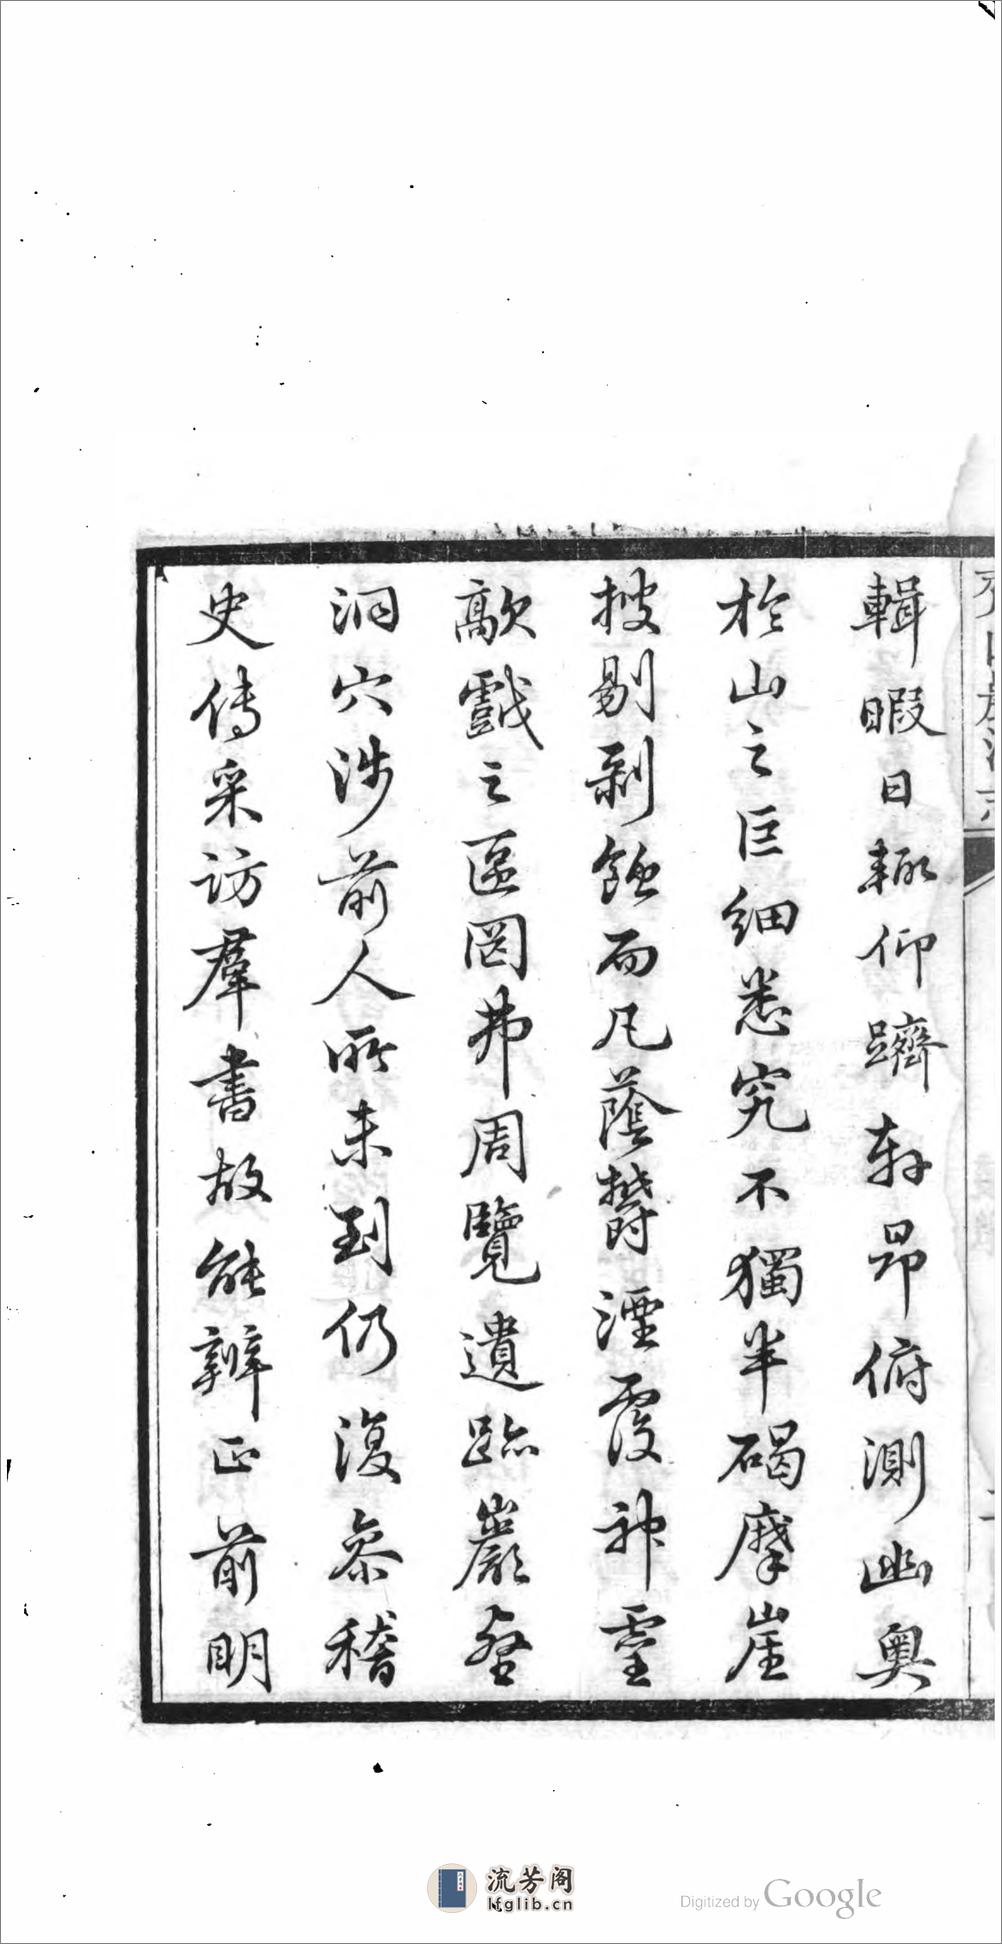 輯暇日輙仰躋軒昂俯測幽奧
於山之巨細悉究不獨半碣摩崖
搜剔剥蝕而凡蔭鬱湮霞神靈
歊戲之區罔弗周覽遺跡巖壑
洞穴涉前人所未到仍復叅稽
史傳采訪羣書故能辨正前明
流芳阁
lfglib.cn
Digitized by Google